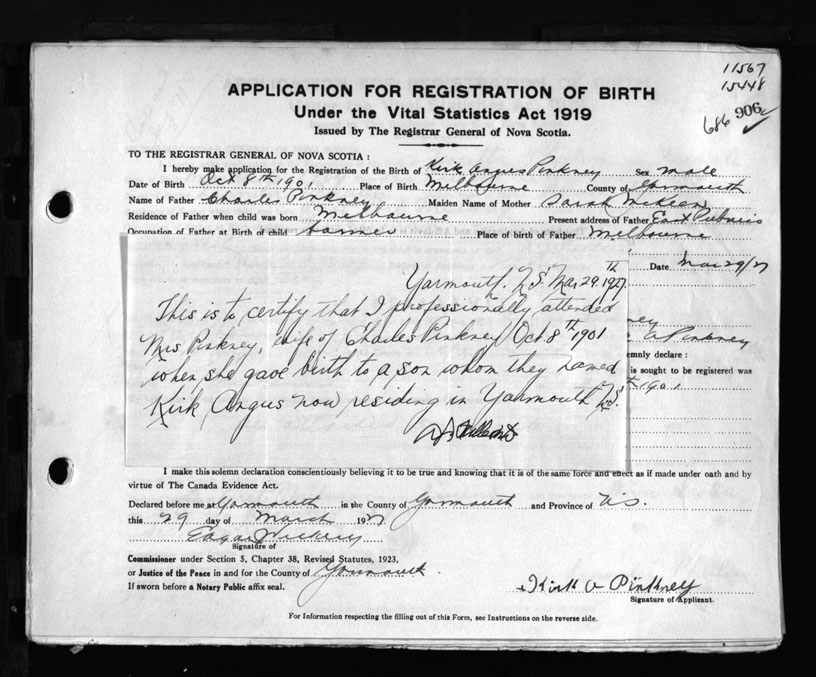 11567
15448
686 906
APPLICATION FOR REGISTRATION OF BIRTH
Under the Vital Statistics Act 1919
Issued by The Registrar General of Nova Scotia.
TO THE REGISTRAR GENERAL OF NOVA SCOTIA :
I hereby make application for the Registration of the Birth of Kirk Angus Pinkney Sex Male
Date of Birth Oct 8th 1901 Place of Birth Melbourne County of Yarmouth
Name of Father Charles Pinkney Maiden Name of Mother Sarah McKeen
Residence of Father when child was born Melbourne Present address of Father East Pubnico
Occupation of Father at Birth of child farmer Place of birth of Father Melbourne
Date Mar 29/27
Yarmouth, N.S. Mar 29th 1927.
This is to certify that I professionally attended
Mrs Pinkney, wife of Charles Pinkney Oct 8th 1901
when she gave birth to a son whom they named
Kirk Angus now residing in Yarmouth N.S.
ney
A Pinkney
emnly declare :
is sought to be registered was
1901
I make this solemn declaration conscientiously believing it to be true and knowing that it is of the same force and effect as if made under oath and by
virtue of The Canada Evidence Act.
Declared before me at Yarmouth in the County of Yarmouth and Province of N.S.
this 29 day of March 1927
Edgar
Signature of
Commissioner under Section 5, Chapter 38, Revised Statutes, 1923,
or Justice of the Peace in and for the County of Yarmouth.
If sworn before a Notary Public affix seal.
Kirk A Pinkney
Signature of Applicant.
For Information respecting the filling out of this Form, see Instructions on the reverse side.